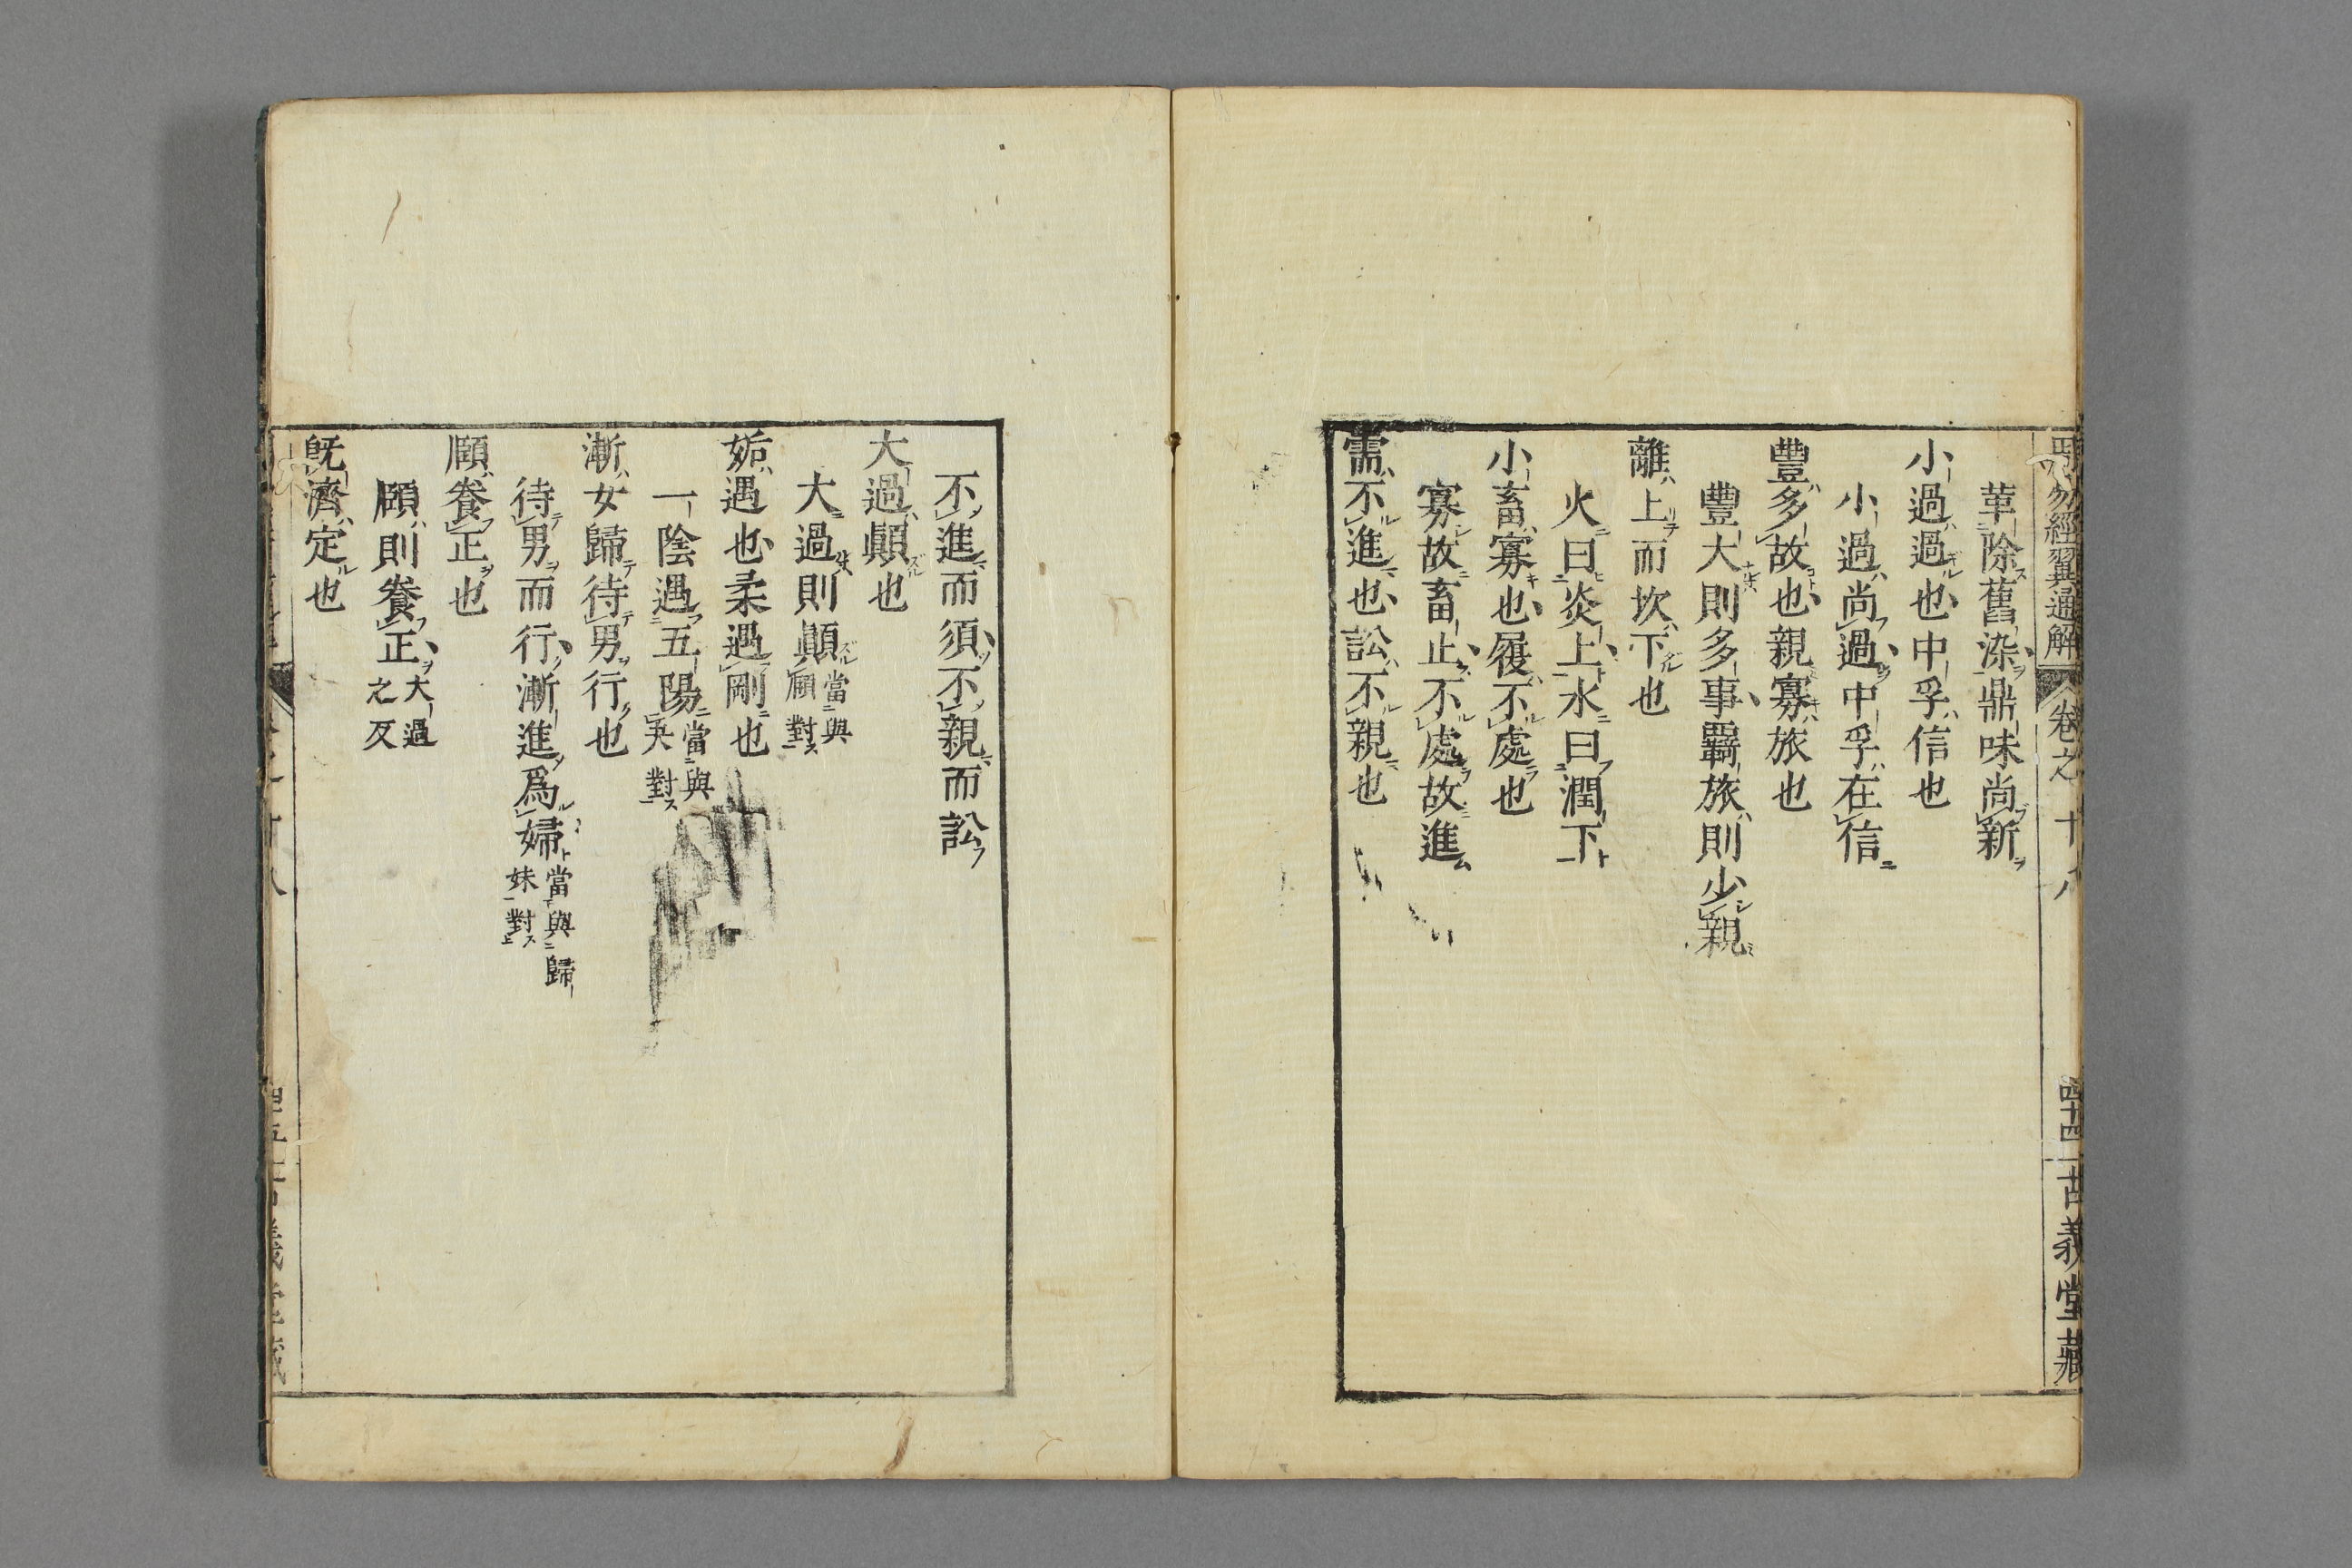 周易經翼通解 卷之十八 四十四 古義堂藏
革除舊染鼎味尚新
小過過也中孚信也
小過尚過中孚在信
豐多故也親寡旅也
豐大則多事羇旅則少親
離上而坎下也
火曰炎上水曰潤下
小畜寡也履不處也
寡故畜止不處故進
需不進也訟不親也
不進而須不親而訟
大過顚也
大過則顚當與頤對
姤遇也柔遇剛也
一陰遇五陽當與夬對
漸女歸待男行也
待男而行漸進爲婦當與歸妹對
頤養正也
頤則養正大過之反
旣濟定也